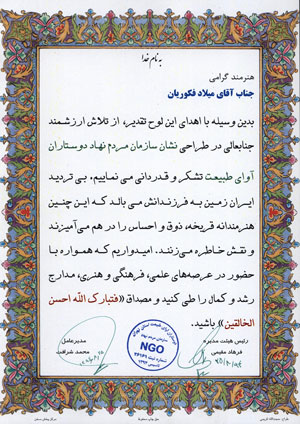 به نام خدا
هنرمند گرامی
جناب آقای میلاد فکوریان
بدین وسیله با اهدای این لوح تقدیر، از تلاش ارزشمند
جنابعالی در طراحی نشان سازمان مردم نهاد دوستاران
آوای طبیعت تشکر و قدردانی می نماییم. بی تردید
ایران زمین به فرزندانش می بالد که این چنین
هنرمندانه قریحه، ذوق و احساس را در هم می‌آمیزند
و نقش خاطره می‌زنند. امیدواریم که همواره با
حضور در عرصه‌های علمی، فرهنگی و هنری، مدارج
رشد و کمال را طی کنید و مصداق «فتبارک الله احسن
الخالقین» باشید.
رئیس هیئت مدیره
فرهاد مقیمی
NGO
مدیرعامل
محمد شرافت